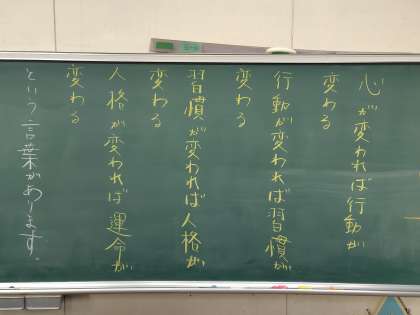 心が変われば行動が
変わる
行動が変われば習慣が
変わる
習慣が変われば人格が
変わる
人格が変われば運命が
変わる
という言葉があります。